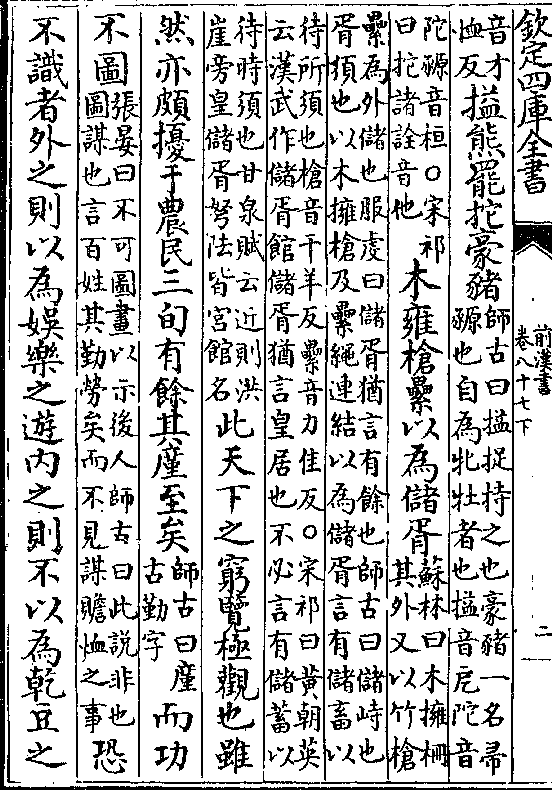 欽定四庫全書
前漢書
卷八十七下
二
音才
恤反
搤熊羆拕豪豬
師古曰搤捉持之也豪豬一名帚
豲也自為牝牡者也搤音戹陀音
陀豲音桓○宋祁
曰拕諸詮音他
木雍槍纍以為儲胥
蘇林曰木擁柵
其外又以竹槍
纍為外儲也服虔曰儲胥猶言有餘也師古曰儲峙也
胥須也以木擁槍及纍繩連結以為儲胥言有儲畜以
待所須也槍音千羊反纍音力佳反○宋祁曰黄朝英
云漢武作儲胥館儲胥猶言皇居也不必言有儲蓄以
待時須也甘泉賦云近則洪
崖旁皇儲胥弩阹皆宮館名
此天下之窮覽極觀也雖
然亦頗擾于農民三旬有餘其廑至矣
師古曰廑
古勤字
而功
不圖
張晏曰不可圖畫以示後人師古曰此說非也
圖謀也言百姓其勤勞矣而不見謀贍恤之事
恐
不識者外之則以為娛樂之遊內之則不以為乾豆之